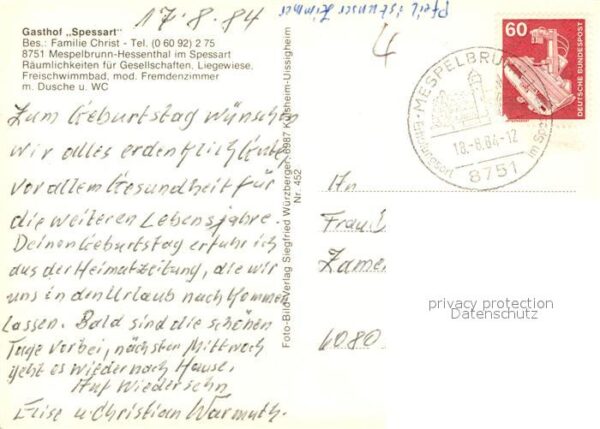 17.8.84
Pfeil ist unser Zimmer
Gasthof „Spessart"
Bes.: Familie Christ - Tel. (0 60 92) 2 75
8751 Mespelbrunn-Hessenthal im Spessart
Räumlichkeiten für Gesellschaften, Liegewiese,
Freischwimmbad, mod. Fremdenzimmer
m. Dusche u. WC
Zum Geburtstag wünschen
wir alles erdenklich Gute,
vor allem Gesundheit für
die weiteren Lebensjahre.
Deinen Geburtstag erfuhr ich
aus der Heimatzeitung, die wir
uns in den Urlaub nach kommen
lassen. Bald sind die schönen
Tage vorbei, nächsten Mittwoch
geht es wieder nach Hause.
Auf Wiedersehn
Elise u Christian Warmuth.
Foto-Bild-Verlag Siegfried Würzberger, 6987 Külsheim-Uissigheim
Nr. 452
60
DEUTSCHE BUNDESPOST
MESPELBRUNN
18.-8.84-12
8751
Erholungsort im
An
Frau
6080
privacy protection
Datenschutz